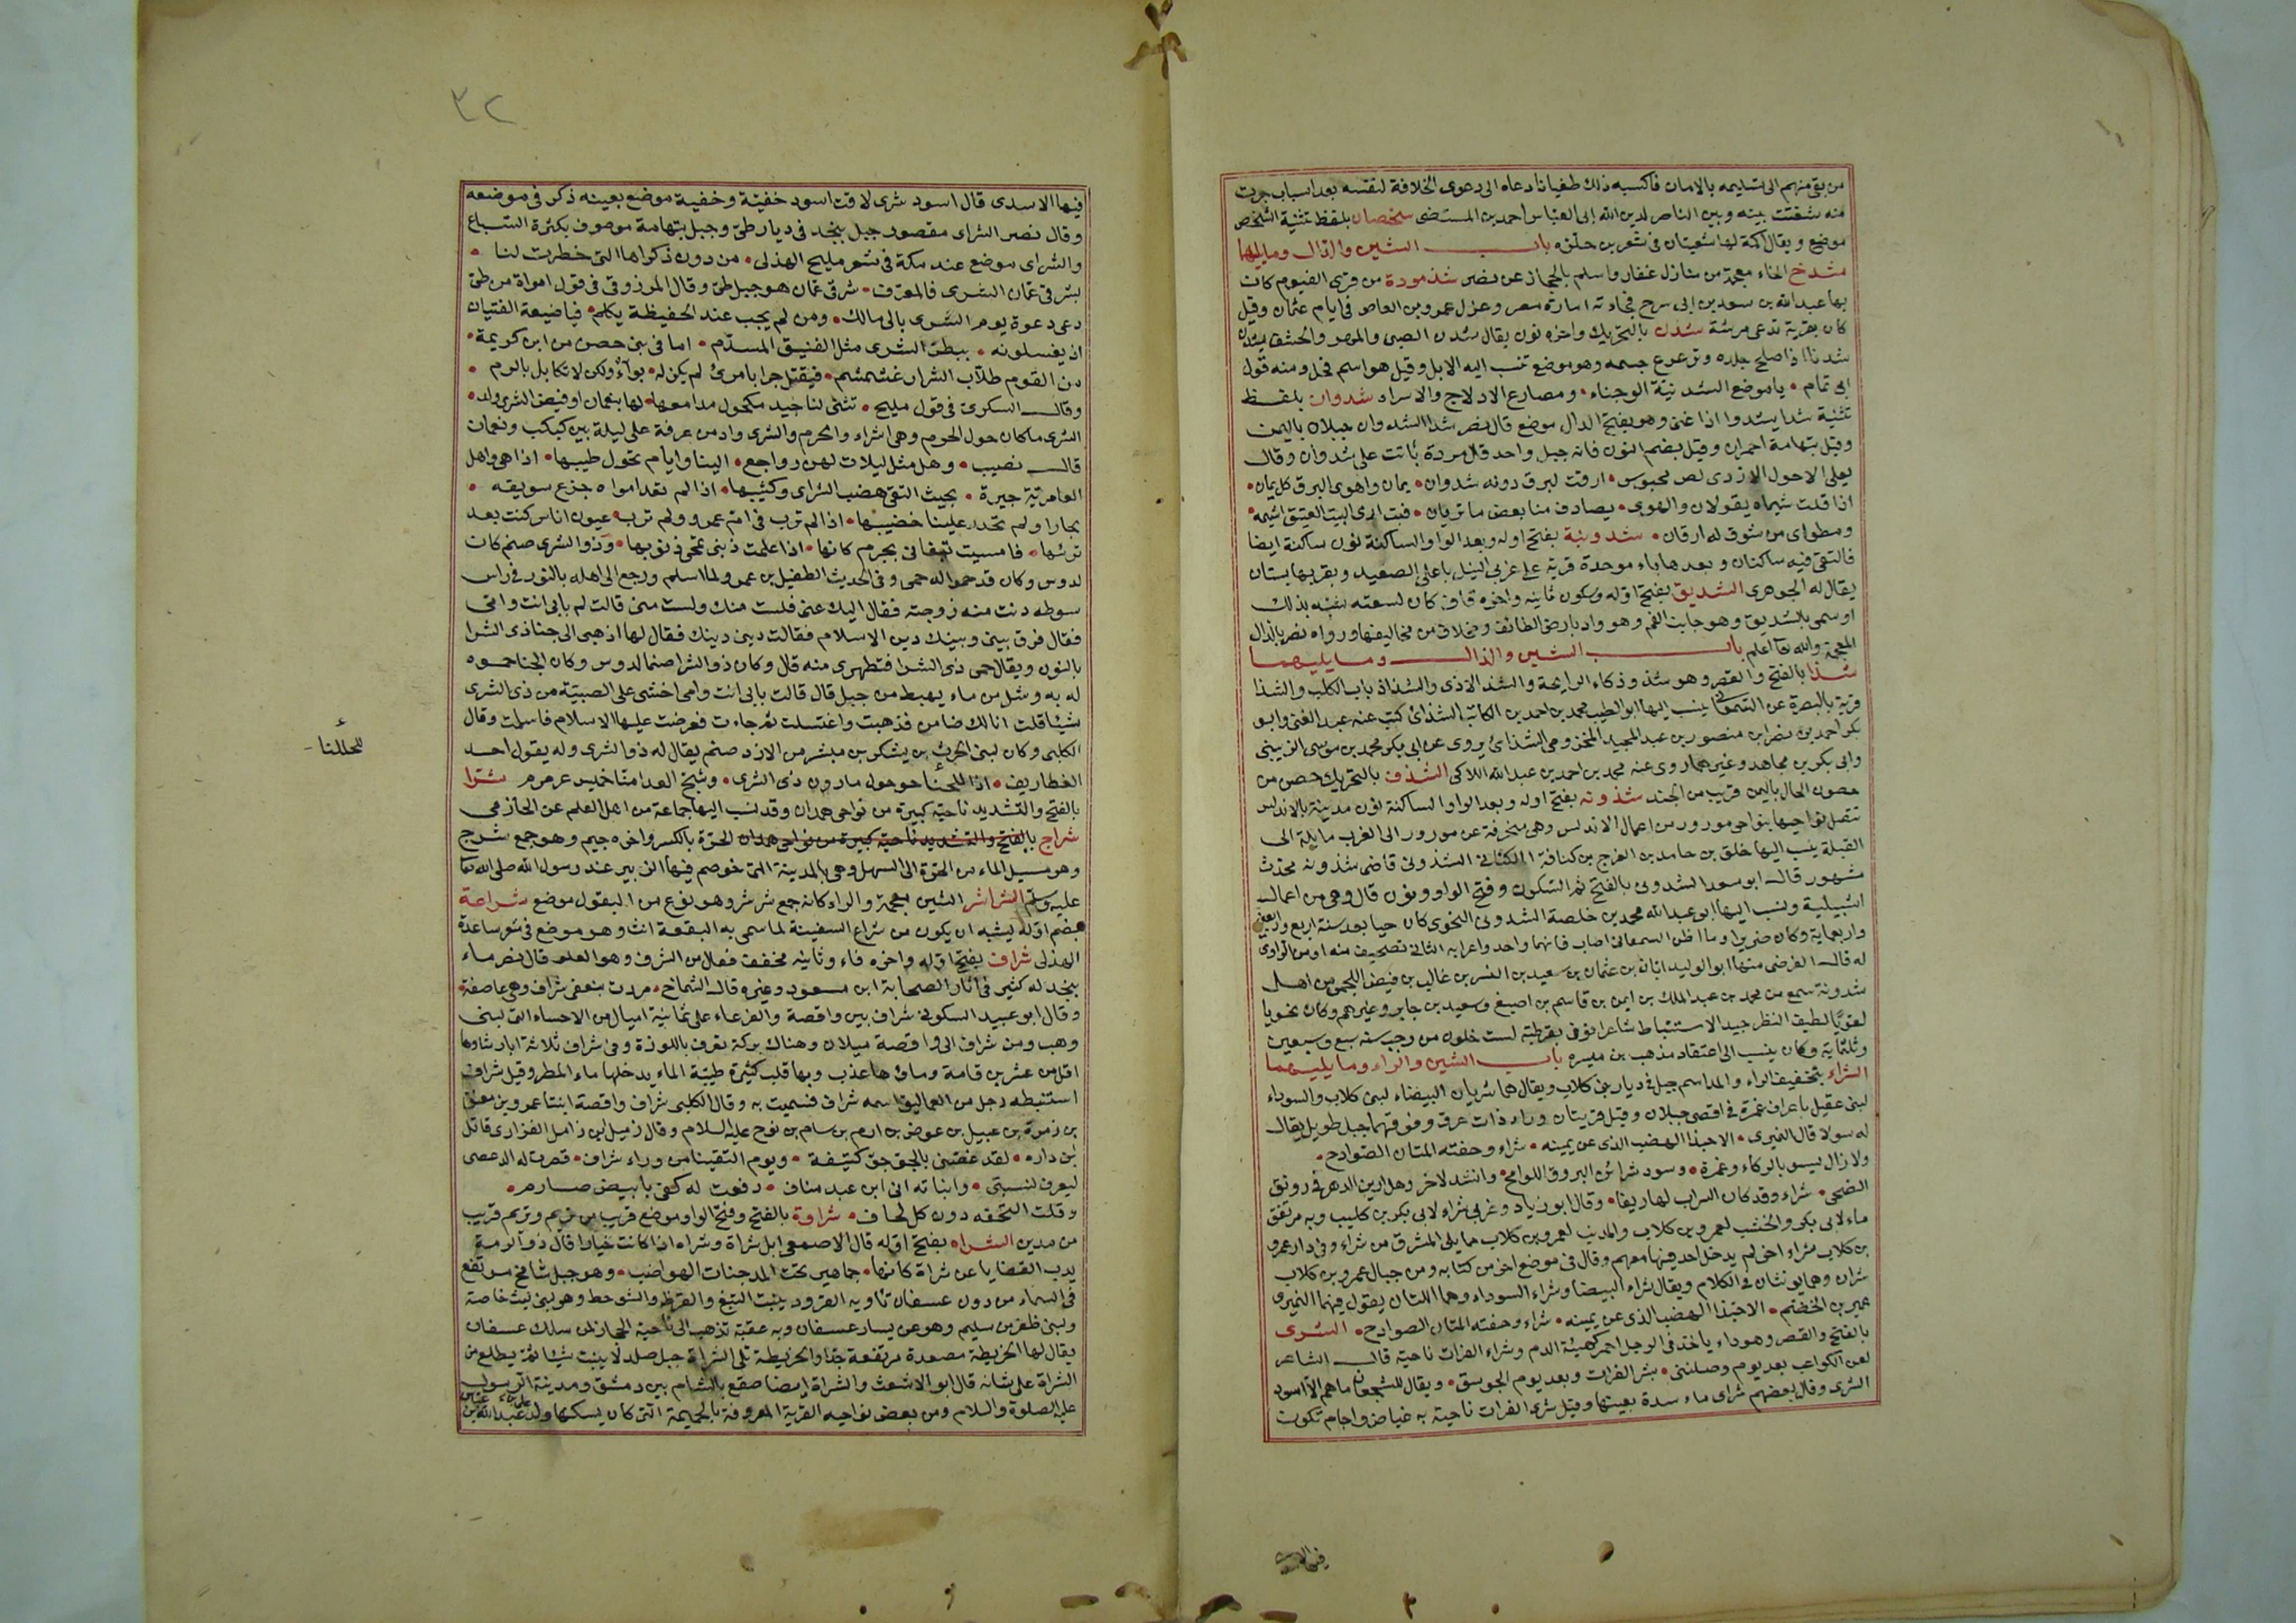 من بقى منهم الى تسليمه بالامان فاكسبه ذلك طغيانا دعاه الى دعوى الخلافة لنفسه بعد اسباب جرت
منه شغتت بينه وبين الناصر لدين الله ابى العباس احمد بن المستضى شخصان بلفظ تثنية الشخص
موضع ويقال اكمة لها شعبتان فى شعر بن حلزه باب الشين والدال وما يليهما
مشدخ الخاء معجمة من منازل غفار واسلم بالحجاز عن نصر شدمودة من قرى الفيوم كان
بها عبد الله بن سعد بن ابى سرح فجاءته امارة مصر وعزل عمرو بن العاص فى ايام عثمان وقيل
كان بقرية تدعى مرشة شدن بالتحريك واخره نون يقال شدن الصبى والمهر والخشف يشدن
شدنا اذا صلح جلده وترعرع جسمه وهو موضع تنسب اليه الابل وقيل هو اسم فحل ومنه قول
ابى تمام • يا موضع الشدنية الوجناء • ومصارع الادلاج والاسراء شدوان بلفظ
تثنية شدا يشدوا اذا غنى وهو بفتح الدال موضع قال نصر شدا الشدوان جبلان باليمن
وقيل بتهامة احمران وقيل بضم النون فانه جبل واحد قال مردة باتت على شدوان وقال
يعلى الاحول الازدى لص محبوس • ارقت لبرق دونه شدوان • يمان واهوى البرق كل يمان •
اذا قلت شيماه يقولان والهوى • يصادف منا بعض ما تريان • فبت ارى البيت العتيق اشيمه •
ومطواى من شوق له ارقان • شدونية بفتح اوله وبعد الواو الساكنة نون ساكنة ايضا
فالتقى فيه ساكنان وبعدها باء موحدة قرية على غربى النيل باعلى الصعيد وبقربها بستان
يقال له الجوهرى الشديق بفتح اوله وسكون ثانيه واخره قاف كان لسعته شبه بذلك
او سمى بالشديق وهو جانب الفم وهو واد بارض الطائف ومخلاف من مخاليفها ورواه نصر بالذال
المعجمة والله تعا اعلم باب الشين والذال وما يليهما
شذا بالفتح والقصر وهو شذ وذكاء الرايحة والشذ الاذى والشذاذ باب الكلب والشذا
قرية بالبصرة عن السمعانى ينسب اليها ابو الطيب محمد بن احمد بن الكاتب الشذائ كتب عنه عبد الغنى وابو
بكر احمد بن نصر ابن منصور بن عبد المجيد المخزومى الشذائ يروى عن ابى بكر محمد بن موسى الزينبى
وابى بكر بن مجاهد وغيرهما روى عنه محمد بن احمد بن عبد الله اللالكى الشذف بالتحريك حصن من
حصون الحال باليمن قريب من الجند شذونه بفتح اوله وبعد الواو الساكنة نون مدينة بالاندلس
تتصل نواحيها بنواحى مورور من اعمال الاندلس وهى منحرفة عن مورور الى الغرب مايلة الى
القبلة ينسب اليها خلق بن حامد بن الفرج بن كنانة الكنانى الشذونى قاضى شذونه محدث
مشهور قال ابو سعد الشدونى بالفتح ثم السكون وفتح الواو ونون قال وهى من اعمال
اشبيلية ونسب اليها ابو عبد الله محمد بن خلصة الشدونى النحوى كان حيا بعد سنة اربع واربعين
واربعماية وكان ضريرا وما اظن السمعانى اصاب فانهما واحد واعرابه الثانى تصحيف منه او من الراوى
له قال الفرضى منها ابو الوليد ابان بن عثمان بن سعيد بن البشر بن غالب بن فيض اللخمى من اهل
شدونة سمع من محمد بن عبد الملك بن ايمن بن قاسم بن اصبغ وسعيد بن جابر وغيرهم وكان نحويا
لغويا لطيف النظر جيد الاستنباط شاعرا توفى بقرطبة لست خلون من رجب سنه سبع وسبعين
وثلثماية وكان ينسب الى اعتقاد مذهب بن مسره باب الشين والراء وما يليهما
الشراء بتخفيف الراء والمد اسم جبل فى ديار بنى كلاب ويقال هما شريان البيضاء لبنى كلاب والسوداء
لبنى عقيل باعراف غمرة فى اقصى جبلان وقيل قريتان وراء ذات عرق وفوقهما جبل طويل يقال
له سولا قال النميرى • الا حبذا الهضب الذى عن يمينه • شراء وحفته المتان الصوادح •
ولا زال يسو بالركاء وغمرة • وسود شرائن البروق اللوامح • وانشد لاخر وهل ارين الدهر فى رونق
الضحى • شراء وقد كان السراب لها ريقا • وقال ابو زياد وغربى شراء لابى بكر بن كليب وبه مرتفق
ماء لابى بكر والخشب لعمرو بن كلاب والمديت لعمرو بن كلاب مما يلى المشرق من شراء وفى دار عمرو
بن كلاب شراء اخر لم يدخل احد فيها معهم وقال فى موضع اخر من كتابه ومن جبال عمرو بن كلاب
شران وهما يونثان فى الكلام ويقال شراء البيضا وشراء السوداء وهما اللتان يقول فيهما النميرى
عمير بن الخضتم • الا حبذا الهضب الذى عن يمينه • شراء وحفته المتان الصوادح • الشرى
بالفتح والقصر وهو داء ياخذ فى الرجل احمر كهيئة الدم وشراء الفرات ناحية قال الشاعر
لعن الكواعب بعد يوم وصلننى • بشر الفرات وبعد يوم الجوسق • ويقال للشجعان ما هم الا اسود
الشرى وقال بعضهم شراى ماء سدة بعينها وقيل شرى الفرات ناحية به غياض واجام تكون
فيها الاسدى
٣٢
فيها الاسدى قال اسود شرى لاقت اسود خفية وخفية موضع بعينه ذكر فى موضعه
وقال نصر الشراى مقصور جبل بنجد فى ديار طى وجبل بتهامة موصوف بكثرة السباع
والشراى موضع عند مكة فى شعر مليح الهذلى • من دون ذكراها التى خطرت لنا •
بشرقى عمان الشرى فالمعرف • شرقى عمان هو جبل طى وقال المرزوقى فى قول امراة من طى
دعى دعوة يوم الشرى بالى مالك • ومن لم يجب عند الحفيظة يكلم • فيا ضيعة الفتيان
اذ يغسلونه • ببطن الشرى مثل الفنيق المسدم • اما فى بنى حصن من ابن كريهة •
من القوم طلاب الشراى غشمشم • فيقتل جرا بامرئ لم يكن له • بواء ولكن لا تكايل بالدم •
وقال السكرى فى قول مليح • تثنى لنا جيد مكحول مدامعها • لها بنعمان او فيض الشرى ولد •
الشرى ما كان حول الحرم وهى اشراء والحرم والشرى واد من عرفة على ليلة بين كبكب ونعمان
قال نصيب • وهل مثل ليلات لهن رواجع • الينا وايام تحول طيبها • اذا هى واهل
العامرية جيرة • بحيث التقى هضب الشراى وكثيبها • اذا لم تعد امواه جزع سويقه •
بحارا ولم تحدر علينا خضيبها • اذا لم ترب فى ام عمرو ولم ترب عيون اناس كنت بعد
تربها • فامسيت تبغانى بجرم كانها • اذا علمت ذنبى تمحى ذنوبها • وذو الشرى صنم كان
لدوس وكان قد حموا له حمى وفى الحديث الطفيل بن عمرو لما اسلم ورجع الى اهله بالنور فى راس
سوطه دنت منه زوجته فقال اليك عنى فلست منك ولست منى قالت لم بابى انت وامى
فقال فرق بينى وبينك دين الاسلام فقالت دينى دينك فقال لها اذهبى الى حنا ذى الشرا
بالنون ويقال حمى ذى الشرا فتطهرى منه قال وكان ذو الشرا صنما لدوس وكان الحنا حموه
له به وشل من ماء يهبط من جبل قال قالت بابى انت وامى اخشى على الصبية من ذى الشرى
شيئا قلت انا لك ضامن فذهبت واغتسلت ثم جاءت فعرضت عليها الاسلام فاسلمت وقال
الكلبى وكان لبنى الحرث بن يشكر بن مبشر من الازد صنم يقال له ذو الشرى وله يقول احد
الغطاريف • اذا للحنا حو حول ما دون ذى الشرى • وشج العدا منا خميس عرمرم شرا
للحللنا
بالفتح والتشديد ناحية كبيرة من نواحى همدان وقد نسب اليها جماعة من اهل العلم عن الحازمى
شراج بالفتح والتشديد ناحية كبيرة من نواحى همدان الحرة بالكسر واخره جيم وهو جمع شرج
وهو مسيل الماء من الحرة الى السهل وهى بالمدينة التى خوصم فيها الزبير عند رسول الله صلى الله تعا
عليه وسلم الشراشر الشين معجمة والراء كانه جمع شرشر وهو نوع من البقول موضع شراعة
بضم اوله يشبه ان يكون من شراع السفينة لما سمى به البقعة انث وهو موضع فى شعر ساعدة
الهذلى شراف بفتح اوله واخره فاء وثانيه مخفف فعال من الشرف وهو العلو قال نصر ماء
بنجد له كثير فى اثار الصحابة ابن مسعود وغيره قال الشماخ • مرت بنعفى شراف وهى عاصفة •
وقال ابو عبيد السكونى شراف بين واقصة والقرعاء على ثمانية اميال من الاحساء التى لبنى
وهب ومن شراف الى واقصة ميلان وهناك بركة تعرف باللوزة وفى شراف ثلاثة ابار رشاوها
اقل من عشرين قامة وماؤها عذب وبها قلب كثيرة طيبة الماء يدخلها ماء المطر وقيل شراف
استنبطه رجل من العماليق اسمه شراف فسميت به وقال الكلبى شراف واقصة ابنتا عمرو بن معنق
بن زمرة بن عبيل بن عوض بن ارم بن سام بن نوح عليه السلام وقال زميل ابن زامل الفزارى قاتل
بن داره • لقد غضنى بالجو جو كتيفة • ويوم التقينا من وراء شراف • قصرت له الدعصى
ليعرف نسبتى • وانباته انى ابن عبد مناف • رفعت له كفى بابيض صارم •
وقلت التحفه دون كل لحاف • شراوة بالفتح وفتح الواو موضع قريب من تريم وتريم قريب
من مدين الشراه بفتح اوله قال الاصمعى ابل شراة وشراه اذا كانت خيارا قال ذو الرمة
يدب القضايا عن شراة كانها • جماهير تحت المدجنات الهواضب • وهو جبل شامخ مرتفع
فى السماء من دون عسفان تاويه القرود ينبت النبع والقرظ والشوحط وهو لبنى ليث خاصة
ولبنى ظفر بن سليم وهو عن يسار عسفان وبه عقبة تذهب الى ناحية الحجاز لمن سلك عسفان
يقال لها الخريطة مصعدة مرتفعة جدا والخريطة تلى الشراة جبل صلد لا ينبت شيئا ثم يطلع من
الشراة على شابه قال ابو الاشعث والشراة ايضا صقع بالشام بين دمشق ومدينة الرسول
عليه الصلوة والسلام ومن بعض نواحيه القرية المعروفة بالحميمة التى كان يسكنها ولد على بن عبد الله بن عباس